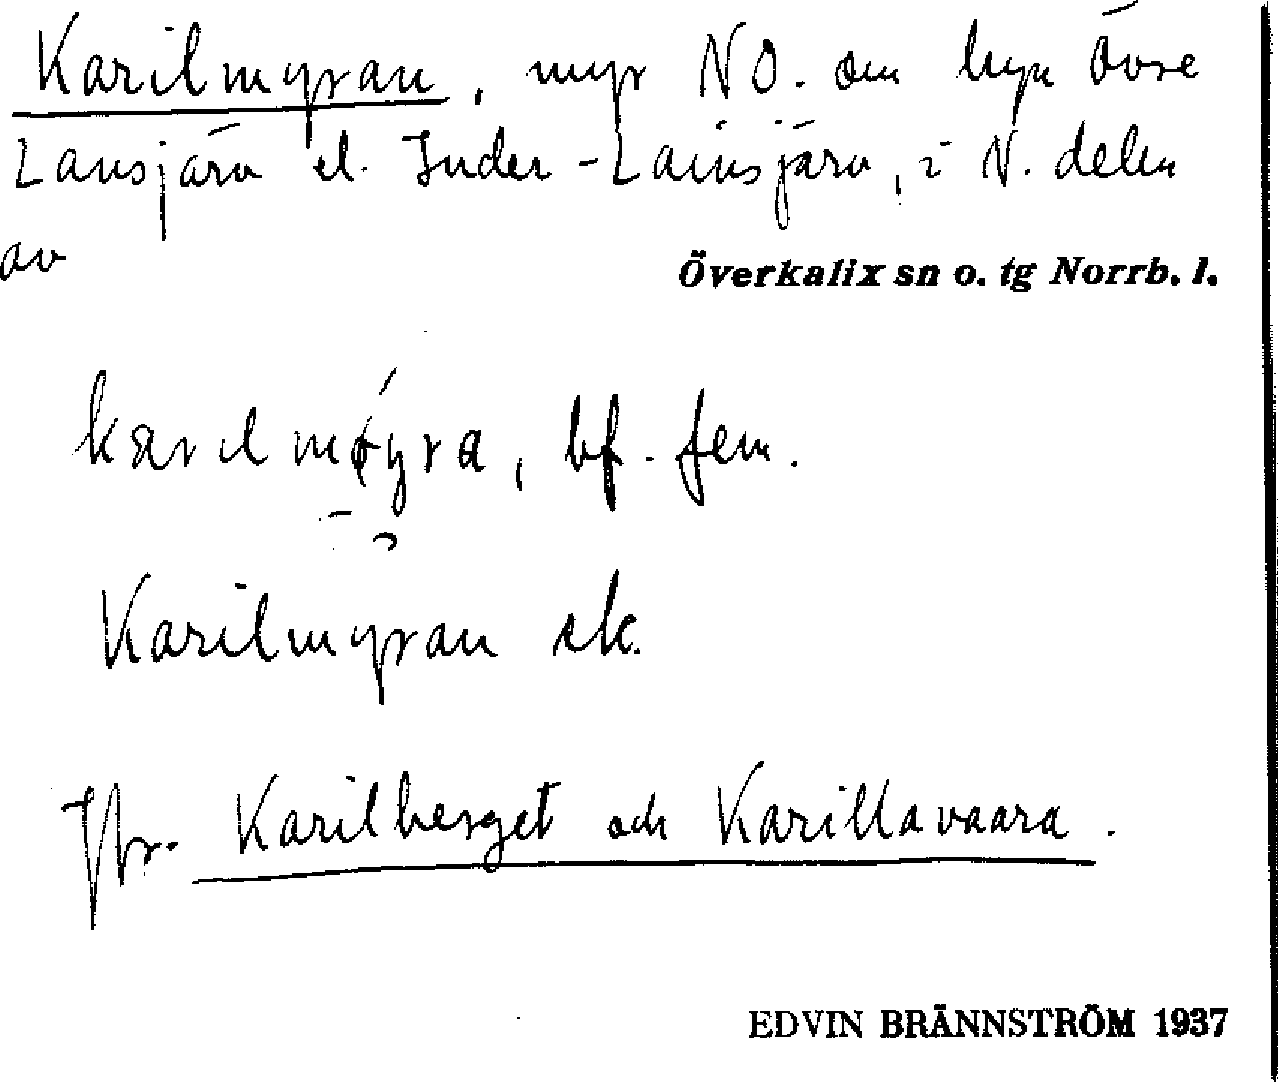 Karilmyran, myr NO. om byn Övre
Lansjärv el. Inder-Lainsjärv, i N. delen
av
Överkalix sn o. tg Norrb. l.
karilmøyra, bf. fem.
Karilmyran ek.
Jfr. Karilberget och Karillavaara.
EDVIN BRÄNNSTRÖM 1937